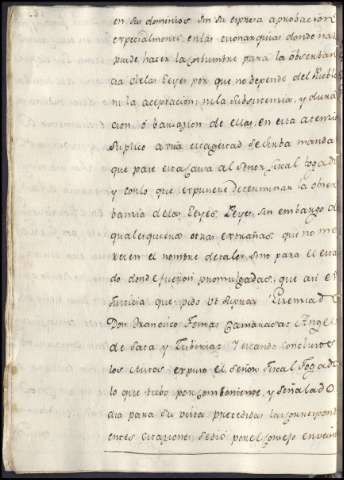 en sus dominios sin su expresa aprobacion
especialmente en las monarquias donde na
puede hacer la costumbre para la observan
cia de las Leyes por que no depende del Pueblo
ni la aceptacion, ni la subsistencia, y dura
cion ó variacion de ellas, en esta atencio
Suplico a la Magestad se sirba manda
que pase esta causa al señor fiscal togad
y con lo que expusiere determinar la obser
bancia de las Leyes Reyes, sin embargo d
qualesquiera otras extrañas, que no me
recen el nombre de tales, sino para el esta
do donde fueron promulgadas, que asi es
Justicia que pido Ut Supra Licenciado
Don Francisco Tomas Camarasa Angel
de Saca y Tiburias Y estando conclusos
los Autos expuso el señor Fiscal Togado
lo que tubo por combeniente, y Señalado
dia para su vista precedidas las correspond
entes citaciones se dió por el Consejo en vein